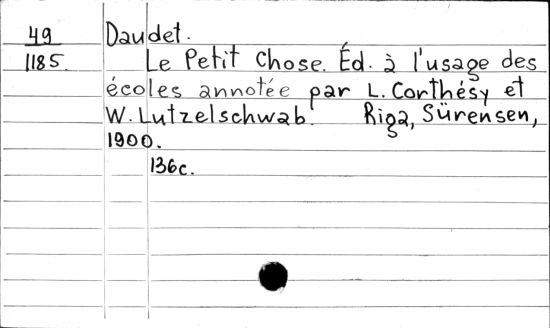 49
1185.
Daudet.
Le Petit Chose. Éd. à l'usage des
écoles annotée par L. Corthésy et
W. Lutzelschwab. Riga, Sürensen,
1900.
136c.